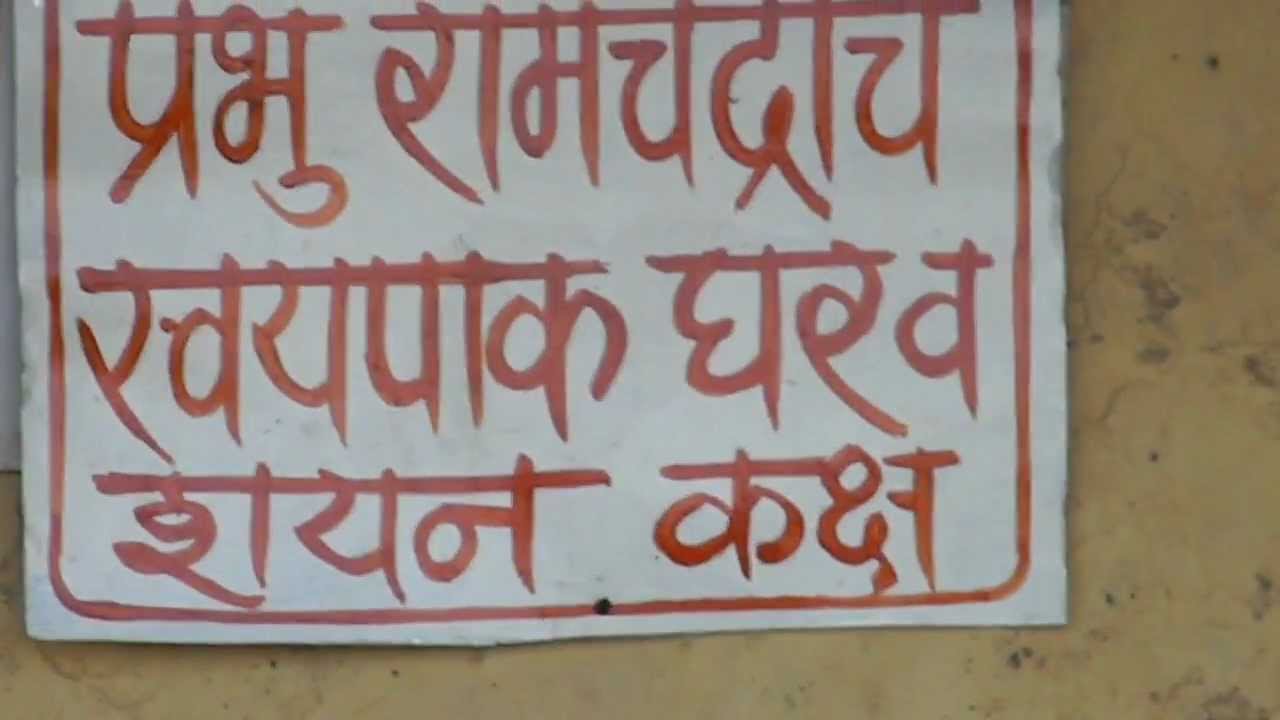 प्रभु रामचद्राच
स्वयपाक घर व
शयन कक्ष